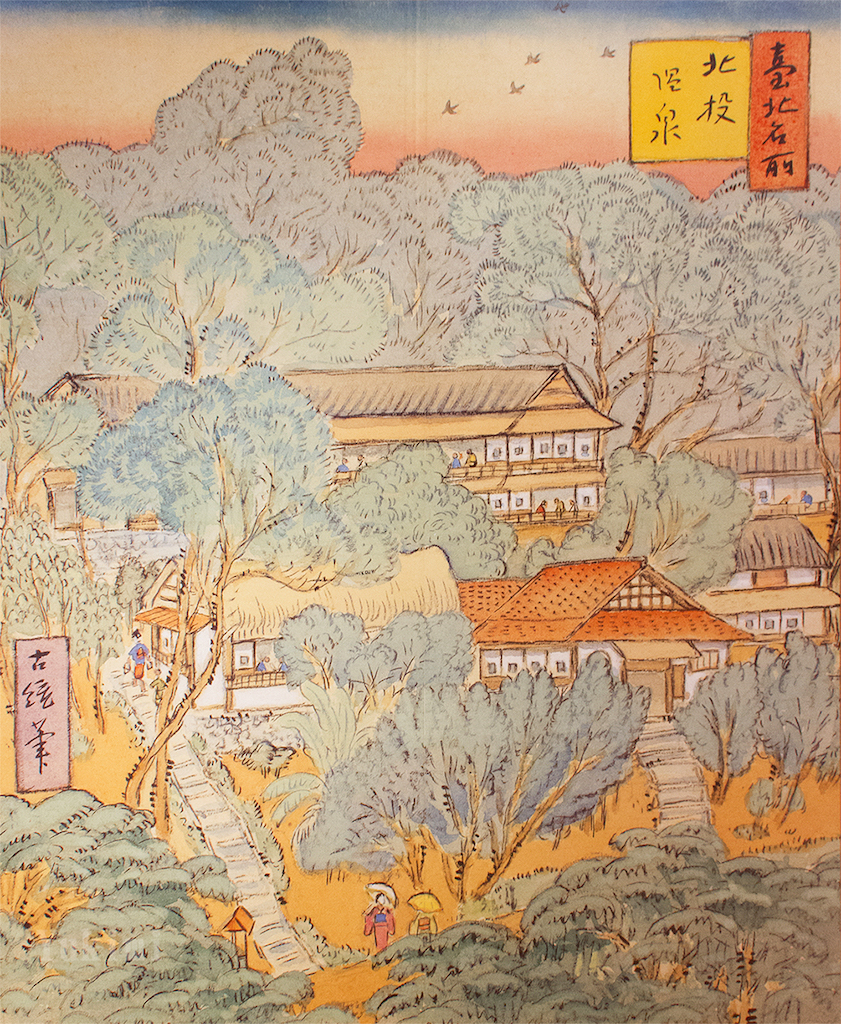 臺北名所
北投
温泉
古統筆